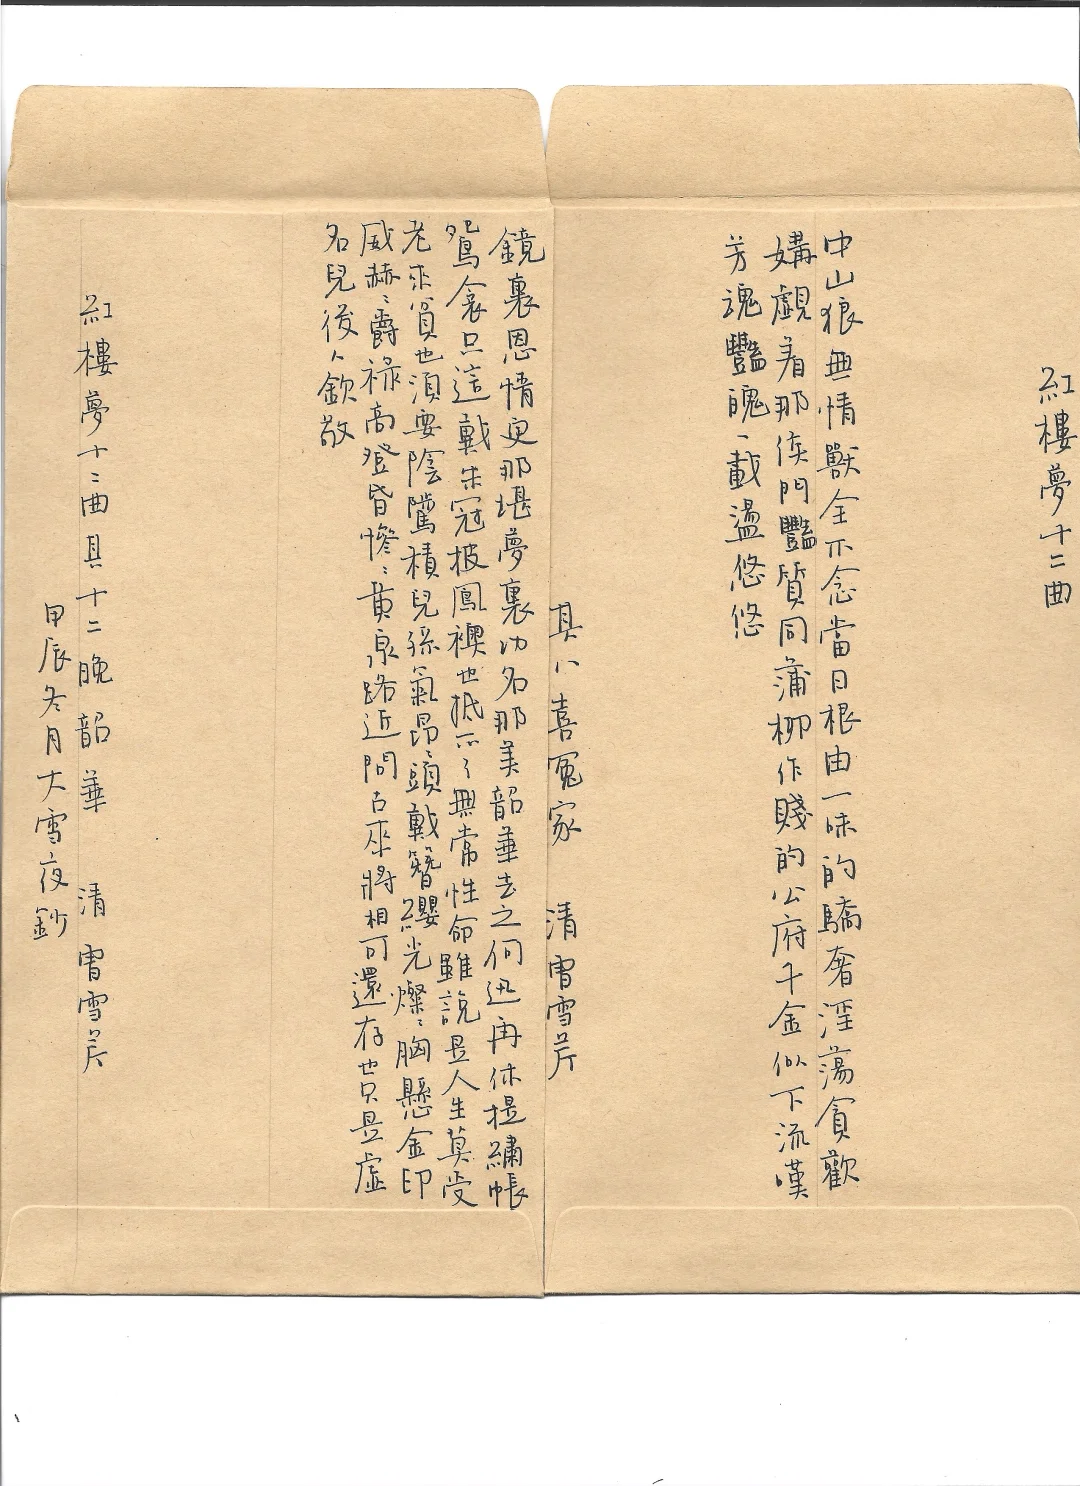 紅樓夢十二曲
中山狼無情獸全不念當日根由一味的驕奢淫蕩貪歡
媾覷着那侯門豔質同蒲柳作賤的公府千金似下流嘆
芳魂豔魄一載盪悠悠
其八喜冤家 清曹雪芹
鏡裏恩情更那堪夢裏功名那美韶華去之何迅再休提繡帳
鴛衾只這戴朱冠披鳳襖也抵不了無常性命雖說是人生莫受
老來貧也須要陰騭積兒孫氣昂〻頭戴簪纓光燦〻胸懸金印
威赫〻爵祿高登昏慘〻黃泉路近問古來將相可還存也只是虛
名兒後人欽敬
紅樓夢十二曲其十二晚韶華 清曹雪芹
甲辰冬月大雪夜鈔